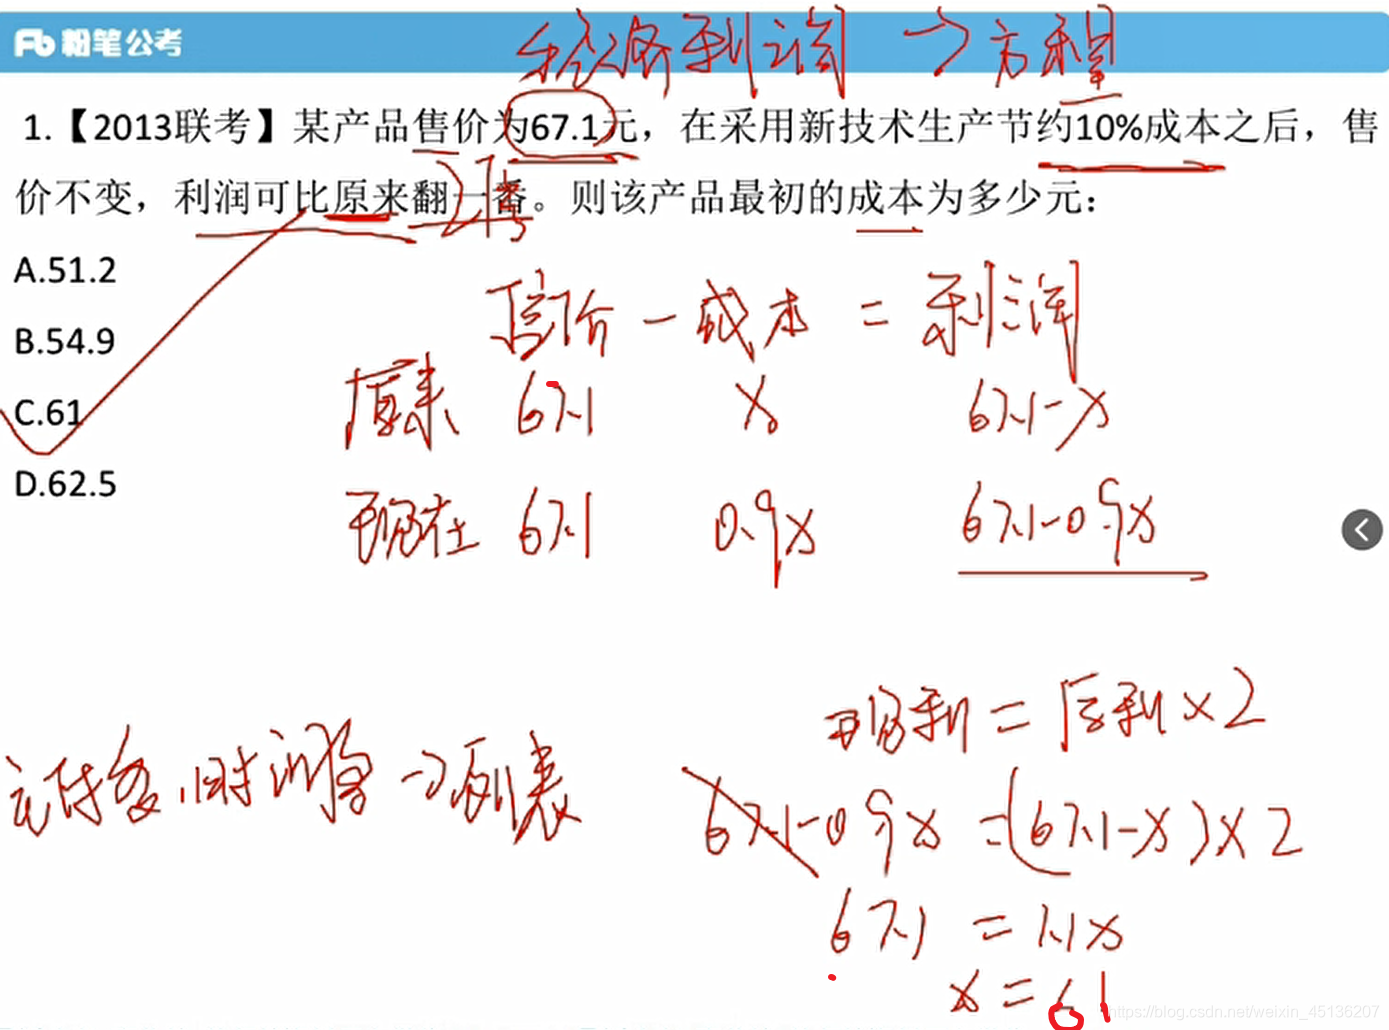 粉笔公考
经济利润 → 方程
1.【2013联考】某产品售价为67.1元，在采用新技术生产节约10%成本之后，售
价不变，利润可比原来翻一番。则该产品最初的成本为多少元：
2倍
A.51.2
B.54.9
C.61
D.62.5
售价 - 成本 = 利润
原来 67.1 x 67.1-x
现在 67.1 0.9x 67.1-0.9x
现利 = 原利 × 2
→ 列表
67.1-0.9x = (67.1-x) × 2
67.1 = 1.1x
x = 61
https://blog.csdn.net/weixin_45136207